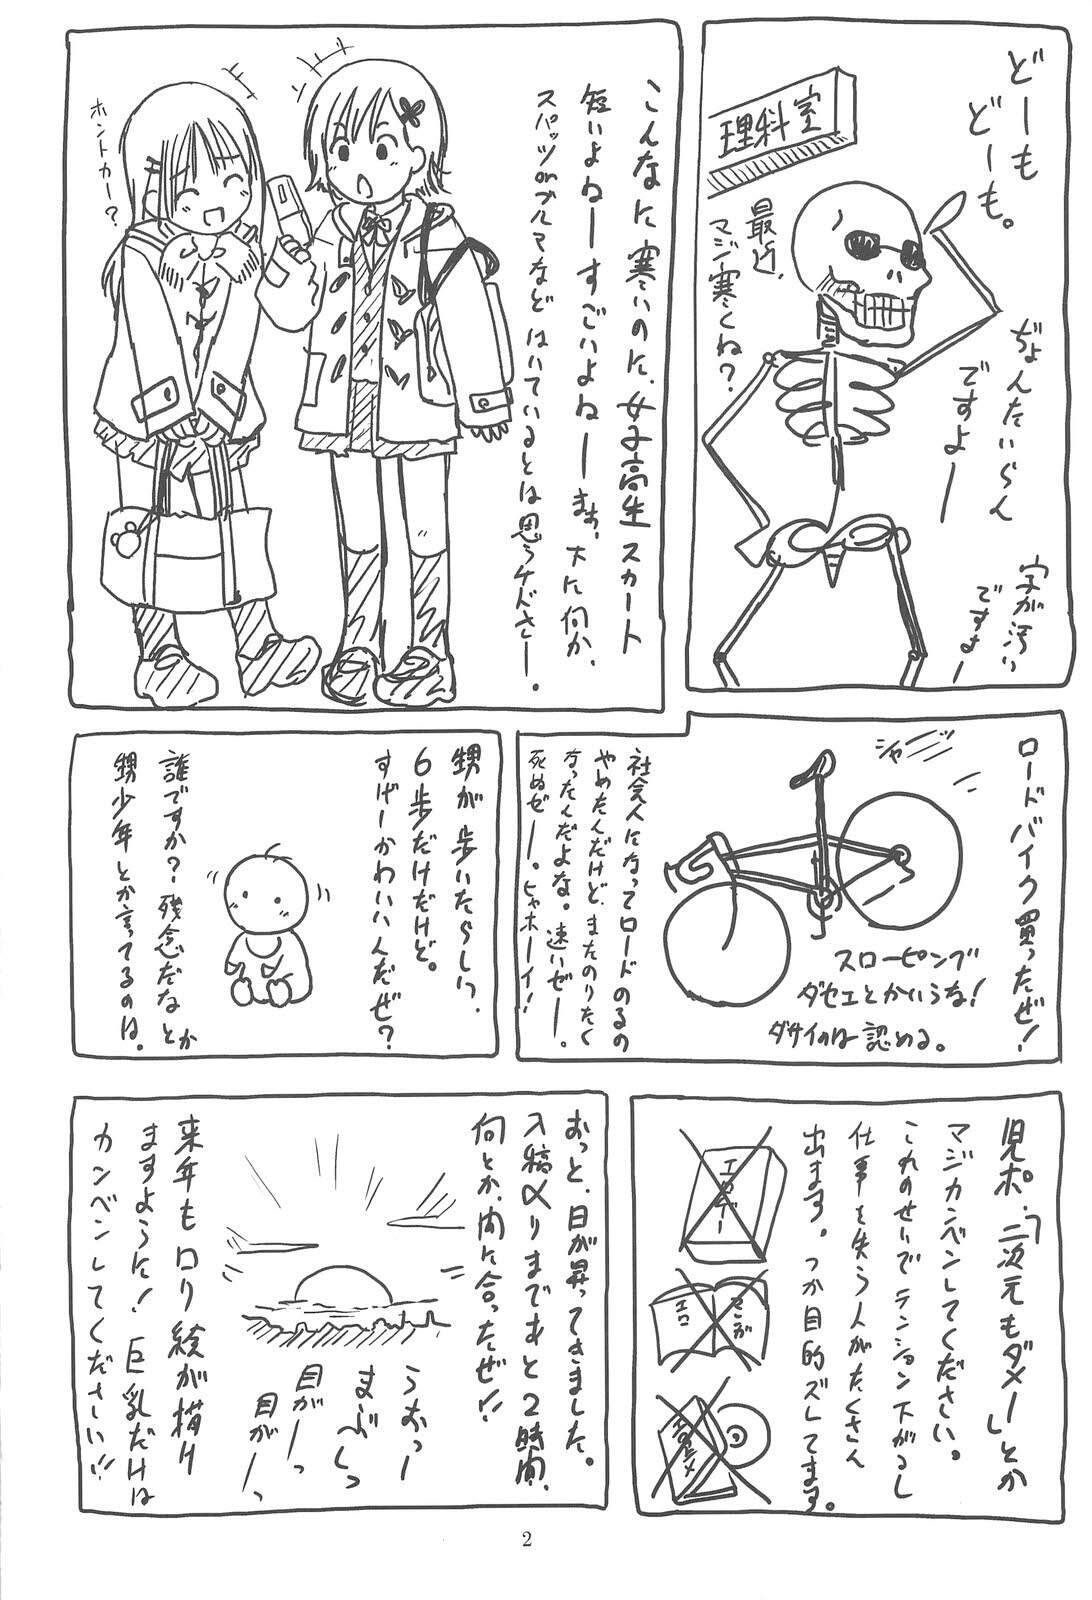 どーも
どーも。
理科室
最近、
マジ寒くね?
ぢょんたいらん
ですよー
字が汚い
ですよー
こんなに寒いのに、女子高生スカート
短いよねーすごいよねーまぁ、下に何か、
スパッツonブルマなどはいているとは思うケドさー。
ホントカー?
ロードバイク買ったぜ!
シャー
スローピング
ダセェとかいうな!
ダサイのは認める。
社会人になってロードのるの
やめたんだけど、またのりたく
なったんだよな。速いぜー。
死ぬぜー。ヒャホーイ!
甥が歩いたらしい。
6歩だけだけど。
すげーかわいいんだぜ?
誰ですか?残念だなとか
甥少年とか言ってるのは。
児ポ「二次元もダメー」とか
マジカンベンしてください。
これのせいでテンション下がるし
仕事を失う人がたくさん
出ます。つか目的ズレてます。
エロゲー
エロ
まんが
エロアニメ
おっと、日が昇ってきました。
入稿〆りまであと2時間、
何とか、間に合ったぜ!!
うおっー
まぶしっ
目がーっ
目がーっ
来年もロリ絵が描け
ますように!巨乳だけは
カンベンしてください!!
2